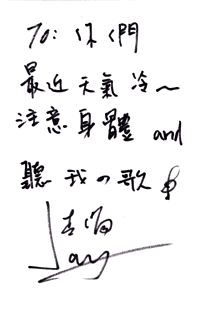 To: 你們
最近天氣冷～
注意身體 and
聽我の歌
Jay